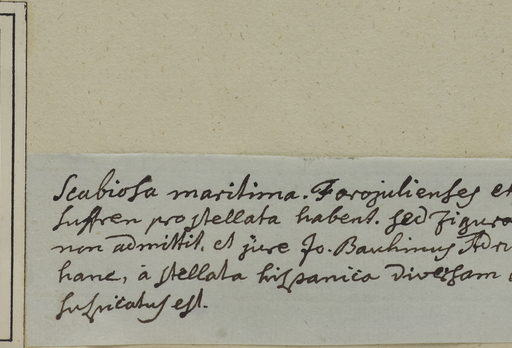 Scabiosa maritima. Forojulienses et
Suffren pro stellata habent. sed figura
non admittit. et jure Jo. Bauhinus
hanc, à stellata hispanica diversam
suspicatus est.